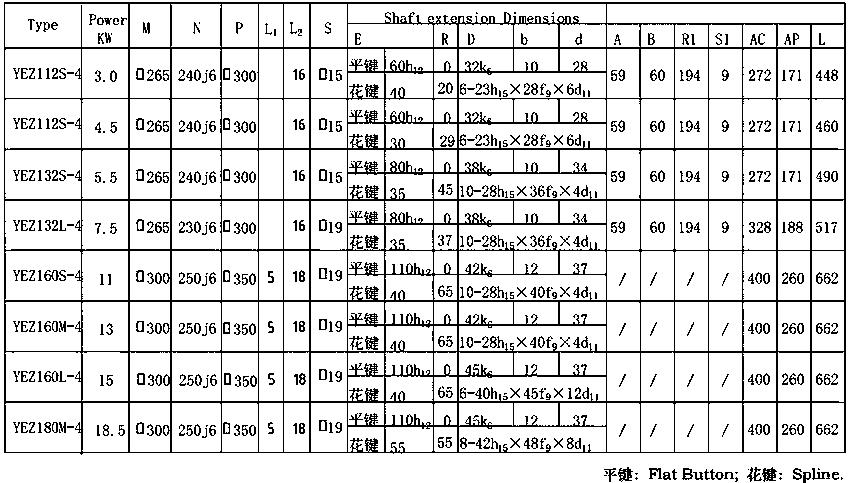 Type Power KW M N P L₁ L₂ S Shaft extension Dimensions
E R D b d A B R1 S1 AC AP L
YEZ112S-4 3.0 □265 240j6 □300 16 □15 平键 60h₁₂ 0 32k₆ 10 28 59 60 194 9 272 171 448
花键 40 20 6-23h₁₅×28f₉×6d₁₁
YEZ112S-4 4.5 □265 240j6 □300 16 □15 平键 60h₁₂ 0 32k₆ 10 28 59 60 194 9 272 171 460
花键 30 29 6-23h₁₅×28f₉×6d₁₁
YEZ132S-4 5.5 □265 240j6 □300 16 □15 平键 80h₁₂ 0 38k₆ 10 34 59 60 194 9 272 171 490
花键 35 45 10-28h₁₅×36f₉×4d₁₁
YEZ132L-4 7.5 □265 230j6 □300 16 □19 平键 80h₁₂ 0 38k₆ 10 34 59 60 194 9 328 188 517
花键 35 37 10-28h₁₅×36f₉×4d₁₁
YEZ160S-4 11 □300 250j6 □350 5 18 □19 平键 110h₁₂ 0 42k₆ 12 37 / / / / 400 260 662
花键 40 65 10-28h₁₅×40f₉×4d₁₁
YEZ160M-4 13 □300 250j6 □350 5 18 □19 平键 110h₁₂ 0 42k₆ 12 37 / / / / 400 260 662
花键 40 65 10-28h₁₅×40f₉×4d₁₁
YEZ160L-4 15 □300 250j6 □350 5 18 □19 平键 110h₁₂ 0 45k₆ 12 37 / / / / 400 260 662
花键 40 65 6-40h₁₅×45f₉×12d₁₁
YEZ180M-4 18.5 □300 250j6 □350 5 18 □19 平键 110h₁₂ 0 45k₆ 12 37 / / / / 400 260 662
花键 55 55 8-42h₁₅×48f₉×8d₁₁
平键: Flat Button; 花键: Spline.